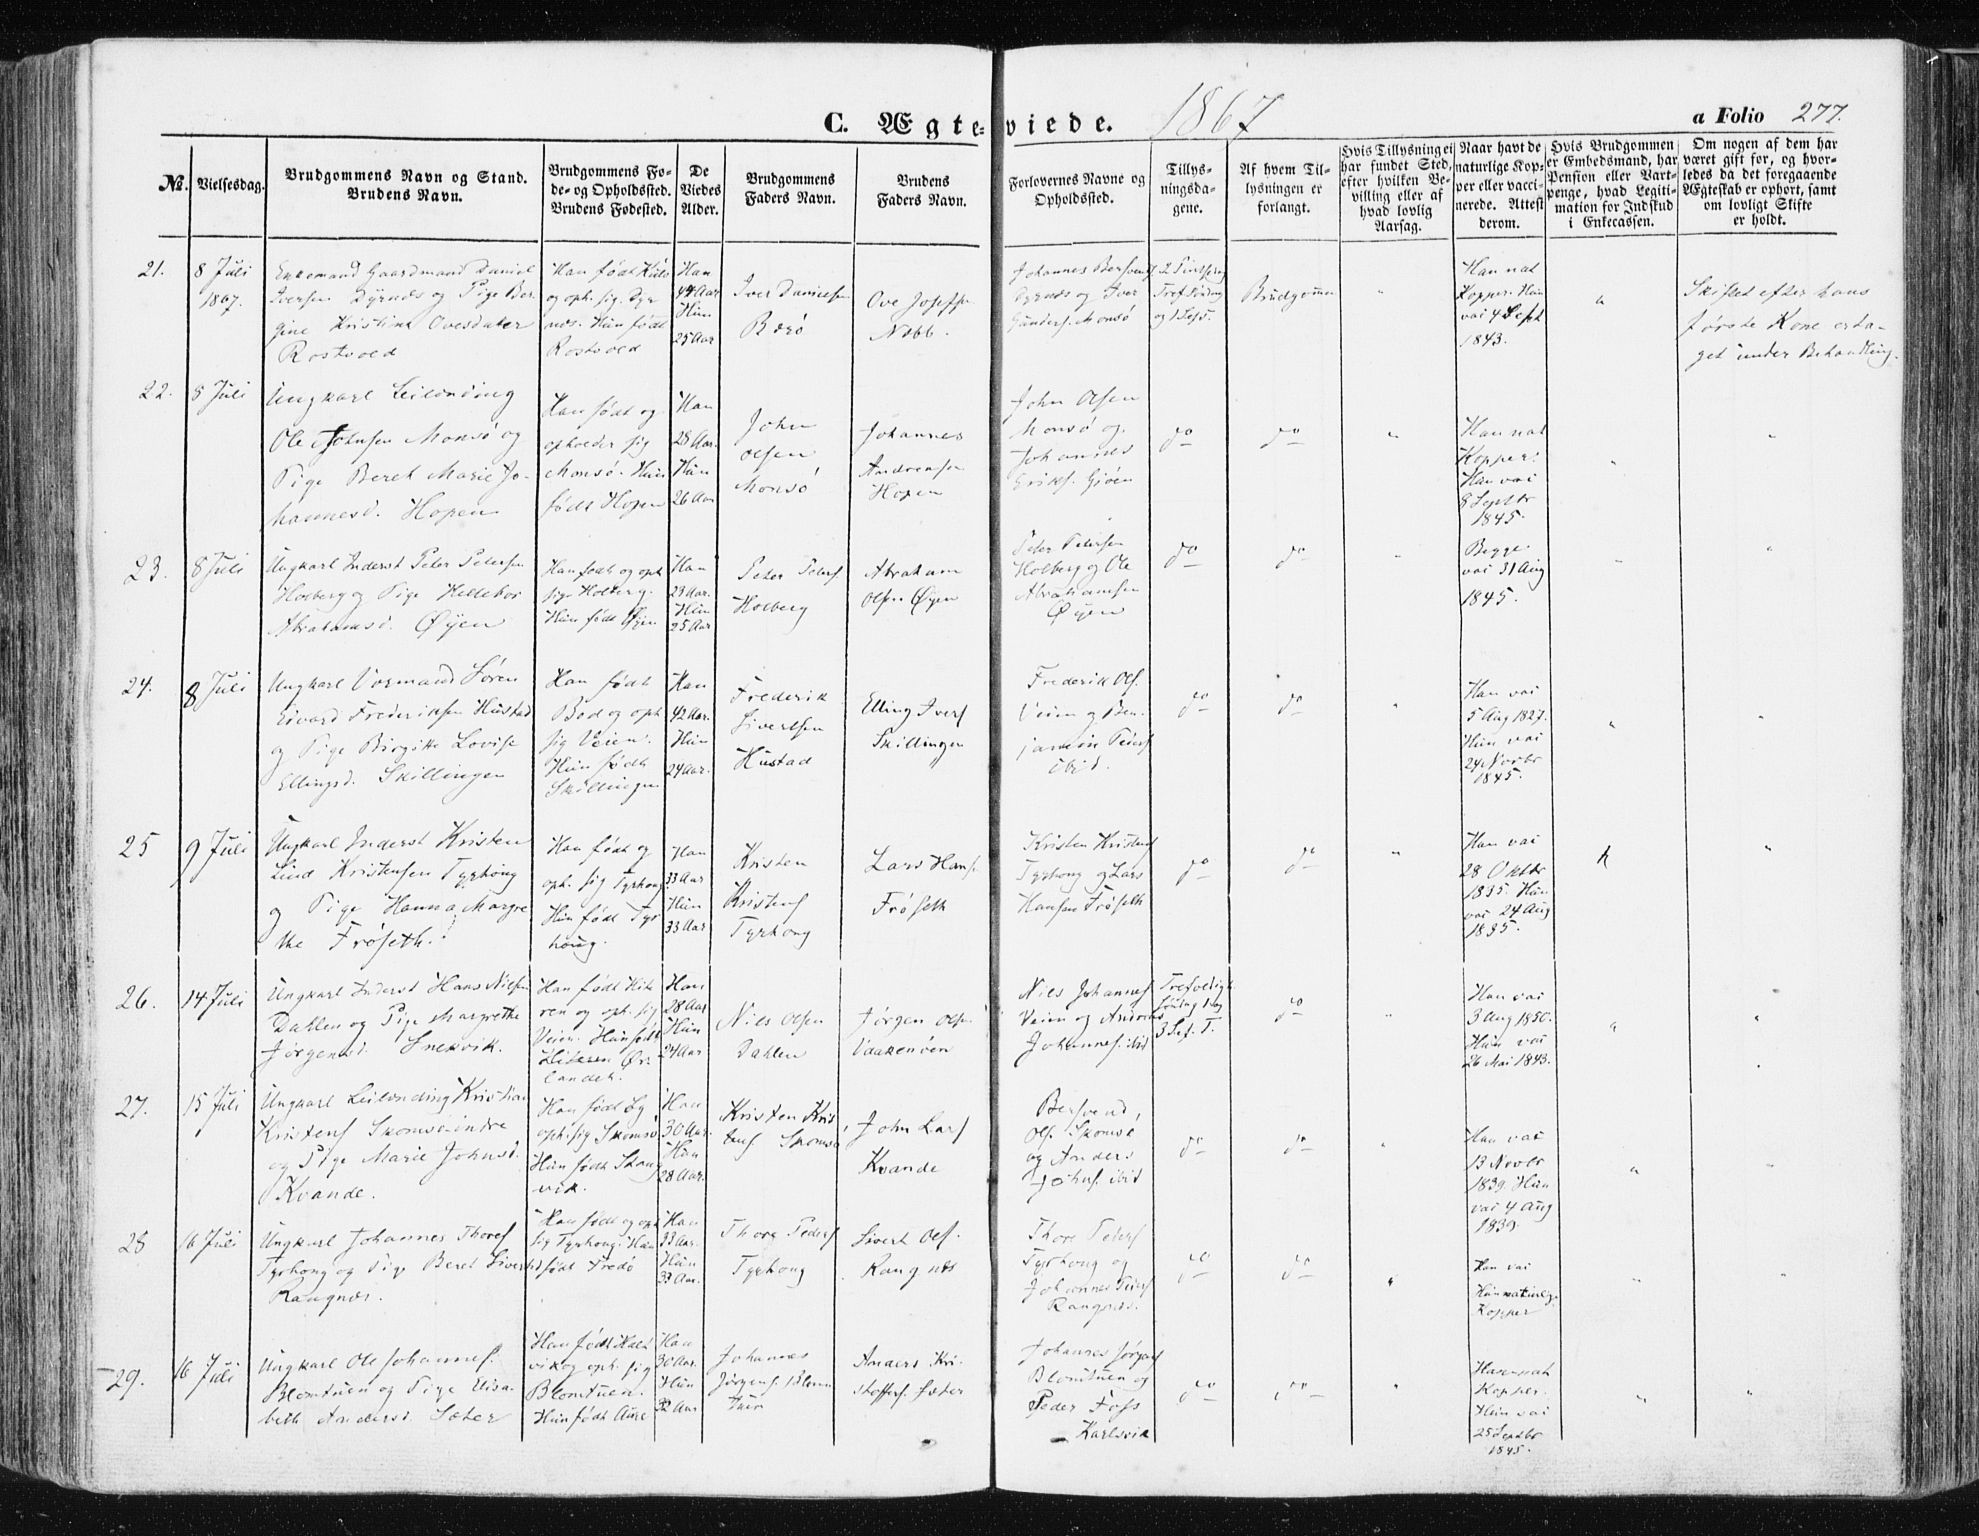 C. Ægteviede. 1867
a Folio 277.
№.
Vielsesdag.
Brudgommens Navn og Stand.
Brudens Navn.
Brudgommens Fo-
de- og Opholdssted.
Brudens Fødested.
De
Viedes
Alder.
Brudgommens
Faders Navn.
Brudens
Faders Navn.
Forlovernes Navne og
Opholdssted.
Tillys-
ningsda-
gene.
Af hvem Til-
lysningen er
forlangt.
Hvis Tillysning ei
har fundet Sted,
efter hvilken Be-
villing eller af
hvad lovlig
Aarsag.
Naar havt de
naturlige Kop-
per eller vacci-
nerede. Attest
derom.
Hvis Brudgommen
er Embedsmand, har
Pension eller Vart-
penge, hvad Legiti-
mation for Indskud
i Enkecassen.
Om nogen af dem har
været gift for, og hvor-
ledes da det foregaaende
Ægteskab er ophort, samt
om lovligt Skifte
er holdt.
21.
8 Juli
1867.
Enkemand Gaardmand Daniel
Iversen Dyrnæs og Pige Ber-
gine Kristine Ovesdatter
Rostvold
Han født
og oph. sig Dyr
næs. Hun født
Rostvold
Han
44 Aar
Hun
25 Aar
Iver Danielsen
Ove Josefsen
Nebb.
Johannes
Dyrnæs og Iver
Gunders. Monsø
Brudgommen
Han nat
Kopper. Hun
vac 4 Sept
1843.
Skiftet efter hans
første Kone er ta-
get under Behandling.
22.
8 Juli
Ungkarl Leilending
Ole Johnsen Monsø og
Pige Beret Marie Jo-
hannesd. Hopen
Han født og
opholder sig
Monsø. Hun
født Hopen
Han
28 Aar.
Hun
26 Aar
John
Olsen
Monsø
Johannes
Andreasen
Hopen
John Olsen
Monsø og
Johannes
Eriks. Gjøen
do
do
Han nat
Kopper.
Hun vac
8 Septbr
1845.
23.
8 Juli
Ungkarl Inderst Peter Petersen
Holberg og Pige Hellebor
Abrahamsd. Øyen
Han født og oph
sig Holberg.
Hun født Øyen
Han
23 Aar.
Hun
25 Aar
Peter Peters
Holberg
Abraham
Olsen Øyen
Peter Petersen
Holberg og Ole
Abrahamsen
Øyen
do
do
Begge
vac 31 Aug
1845.
24.
8 Juli
Ungkarl Vormand Søren
Edvard Frederiksen Hustad
og Pige Birgitte Lovise
Ellingsd. Skillingen
Han født
Bod og oph
sig Veien.
Hun født
Skillingen
Han
42 Aar.
Hun
24 Aar.
Frederik
Sivertsen
Hustad
Elling Ivers
Skillingen
Frederik Ols.
Veien og Ben-
jamin Peders
ibid.
do
do
Han vac
5 Aug 1827.
Hun vac
24 Novbr
1845.
25
9 Juli
Ungkarl Inderst Kristen
Lind Kristensen Tyrhoug
og Pige Hanna Margre
the Frøseth.
Han født og
oph. sig Tyrhoug
Hun født Tyr
houg.
Han
33 Aar
Hun
33 Aar
Kristen
Kristens
Tyrhoug
Lars Hans.
Frøseth
Kristen Kristens
Tyrhoug og Lars
Hansen Frøseth
do
do
Han vac
28 Oktbr
1835. Hun
vac 24 Aug
1835.
26.
14 Juli
Ungkarl Inderst Hans Nilsen
Dahlen og Pige Margrethe
Jørgensd. Snekvik.
Han født Hit-
ren og oph. sig
Veien. Hun født
Hiteren Ør-
landet.
Han
28 Aar
Hun
24 Aar
Nils Olsen
Dahlen
Jørgen Ols.
Nils Johannes
Veien og Andreas
Johannes. ibid
Trefoldigh.
Søndag
3 S.e. T.
do
Han vac
3 Aug 1850.
Hun vac
26 Mai 1843.
27.
15 Juli
Ungkarl Leilending Kristian
Kristens Skomsø indre
og Pige Marie Johnsd.
Kvande.
Han født og
oph. sig Skomsø.
Hun født Skaug
vik.
Han
30 Aar.
Hun
28 Aar.
Kristen Kris
tens Skomsø
John Lars
Kvande
Bersvend
Ols. Skomsø
og Anders
Johns. ibid
do
do
Han vac
13 Novbr
1839. Hun
vac 4 Aug
1839.
28
16 Juli
Ungkarl Johannes Thores
Tyrhoug og Pige Beret Sivertsd
Rangnæs.
Han født og oph
sig Tyrhoug. Hun
født Fredø
Han
33 Aar.
Hun
Thore Peders
Tyrhoug
Sivert Ols.
Rangnæs
Thore Peders
Tyrhoug og
Johannes Peders
Rangnæs.
do
do
Han vac
Hun naturlige
Kopper
29.
16 Juli
Ungkarl Ole Johannes.
Blomtuen og Pige Elisa-
beth Andersd. Sæter
Han født Halt
vik og oph. sig
Blomtuen.
Hun født Aure
Han
30 Aar.
Hun
32 Aar
Johannes
Jørgens. Blom
tuen
Anders Kri-
stoffers. Sæter
Johannes Jørgens
Blomtuen og
Peder Foss
Karlsvik
do
do
Han nat
Kopper.
Hun vac
25 Septbr
1845.